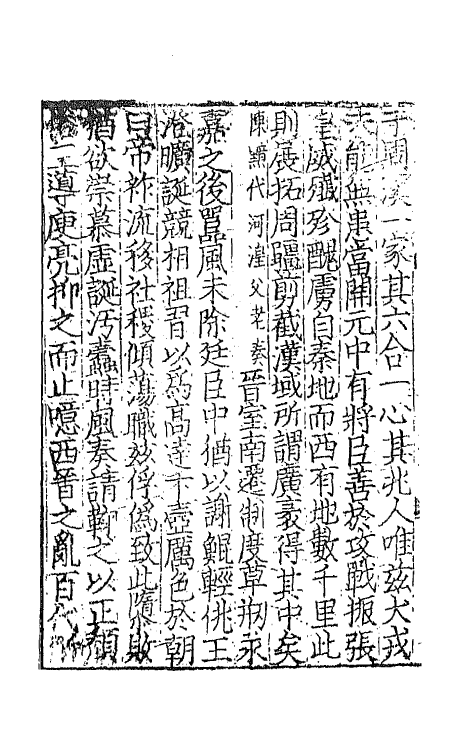 于闐漠一家其六合一心其兆人唯茲犬戎
能無患當開元中有將臣善於攻戰振張
皇威殲殄醜虜自秦地而西有地數千里此
則展拓周疆剪截漢域所謂廣袤得其中矣
陳黯代河湟父老奏 晉室南遷制度草刱永
嘉之後囂風未除廷臣中猶以謝鯤輕佻王
澄曠誕競相祖習以為高達卞壺厲色於朝
曰帝祚流移社稷傾蕩職茲俘偽致此隳敗
猶欲崇慕虛誕汚蠹時風奏請鞠之以正頽
俗王導庾亮抑之而止噫西晉之亂百代